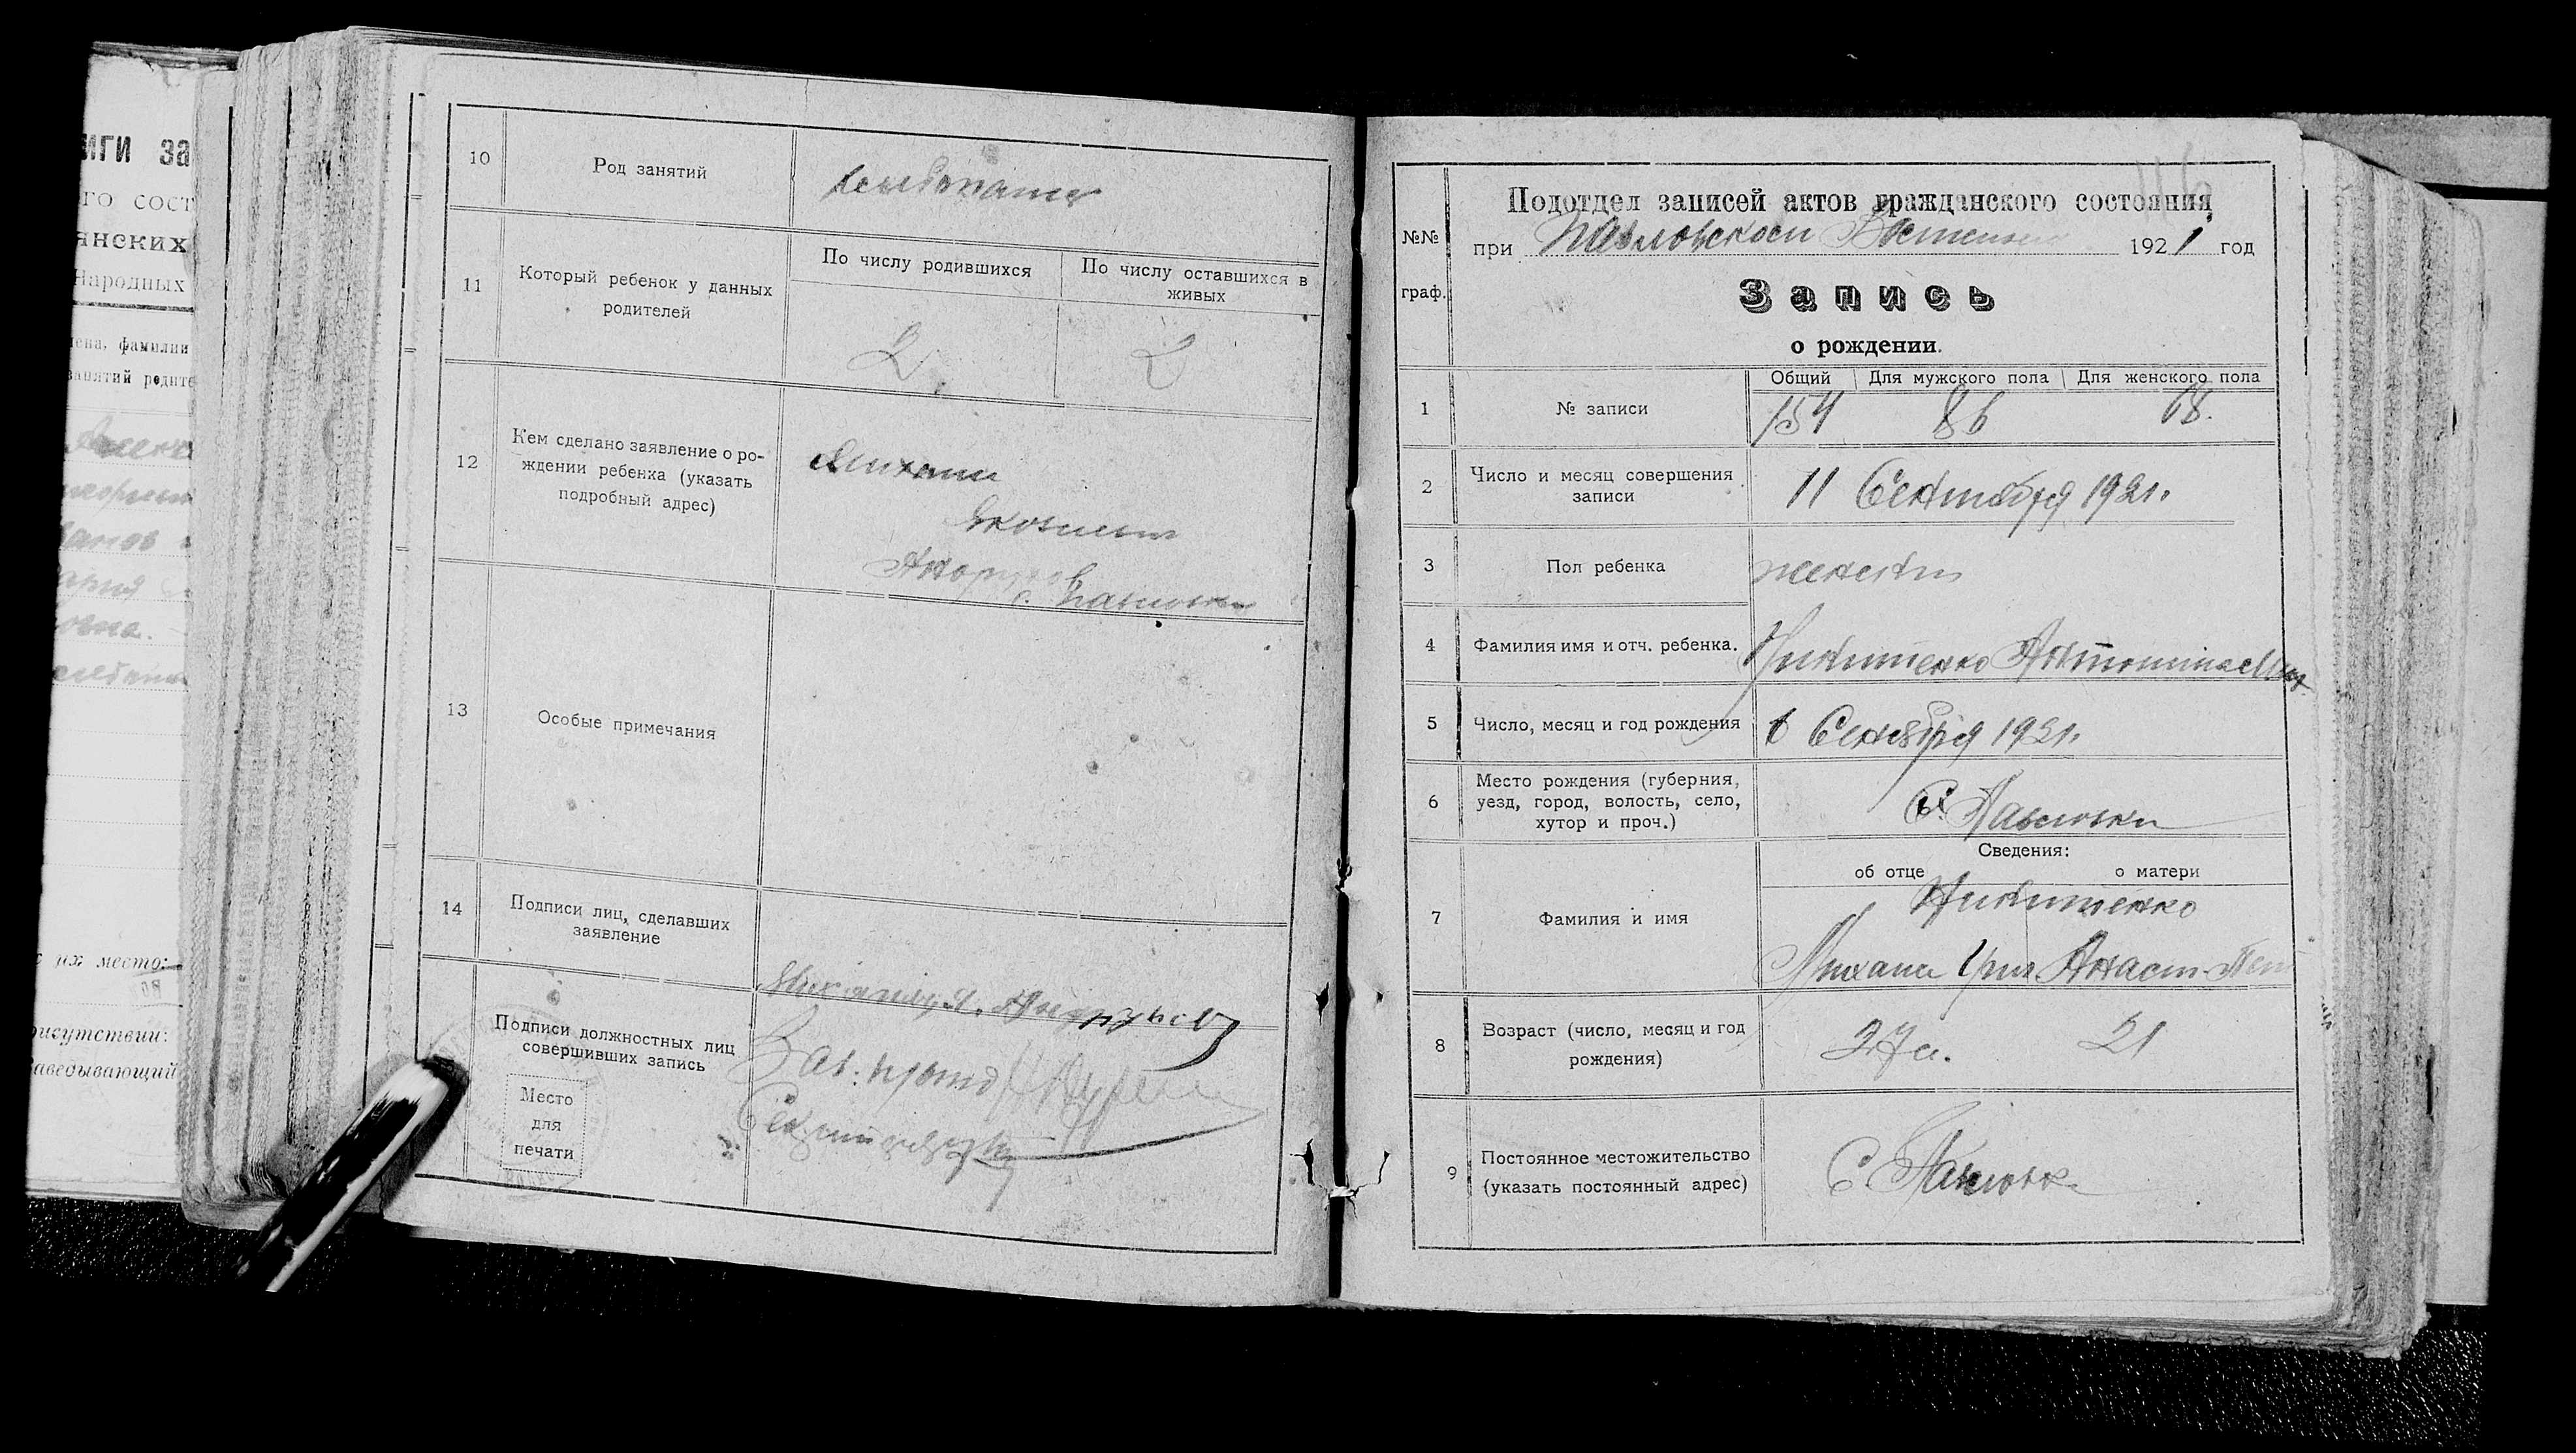 иги за
го сост
янских
Народных
ена, фамилии
занятий родите
их место:
рисутствии:
Заведывающий
10
Род занятий
хлебопашец
11
Который ребенок у данных
родителей
По числу родившихся
По числу оставшихся в
живых
2
2
12
Кем сделано заявление о ро-
ждении ребенка (указать
подробный адрес)
Михаил
Яковлевич
с. Павловки
13
Особые примечания
14
Подписи лиц, сделавших
заявление
Подписи должностных лиц
совершивших запись
Место
для
печати
Подотдел записей актов гражданского состояния
№№
граф.
при Павловском 1921 год
Запись
о рождении.
Общий Для мужского пола Для женского пола
1 № записи 154 86 68.
2 Число и месяц совершения
записи
11 Сентября 1921.
3 Пол ребенка женский
4 Фамилия имя и отч. ребенка. Никитенко Антонина Мих
5 Число, месяц и год рождения 6 Сентября 1921.
6 Место рождения (губерния,
уезд, город, волость, село,
хутор и проч.)
С. Павловки
Сведения:
об отце о матери
7 Фамилия и имя
Никитенко
Михаил Григ. Анаст.
8 Возраст (число, месяц и год
рождения)
27 л. 21
9 Постоянное местожительство
(указать постоянный адрес)
С Павловка